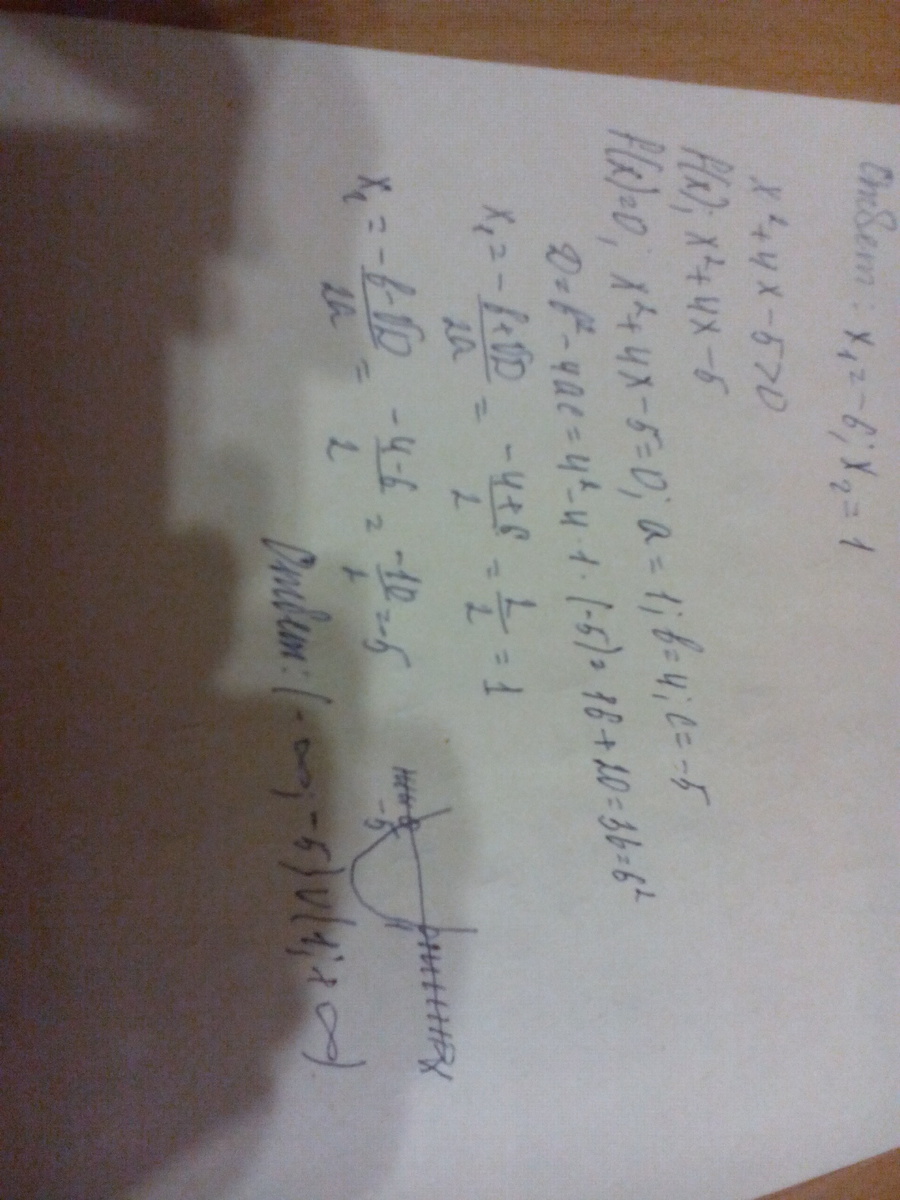 Ответ: x₁ = -6; x₂ = 1
x² + 4x - 5 > 0
f(x); x² + 4x - 5
f(x) = 0; x² + 4x - 5 = 0; a = 1; b = 4; c = -5
D = b² - 4ac = 4² - 4 · 1 · (-5) = 16 + 20 = 36 = 6²
x₁ = -b+√D/2a = -4+6/2 = 2/2 = 1
x₂ = -b-√D/2a = -4-6/2 = -10/2 = -5
-5 1 x
Ответ: (-∞; -5) ∪ (1; +∞)